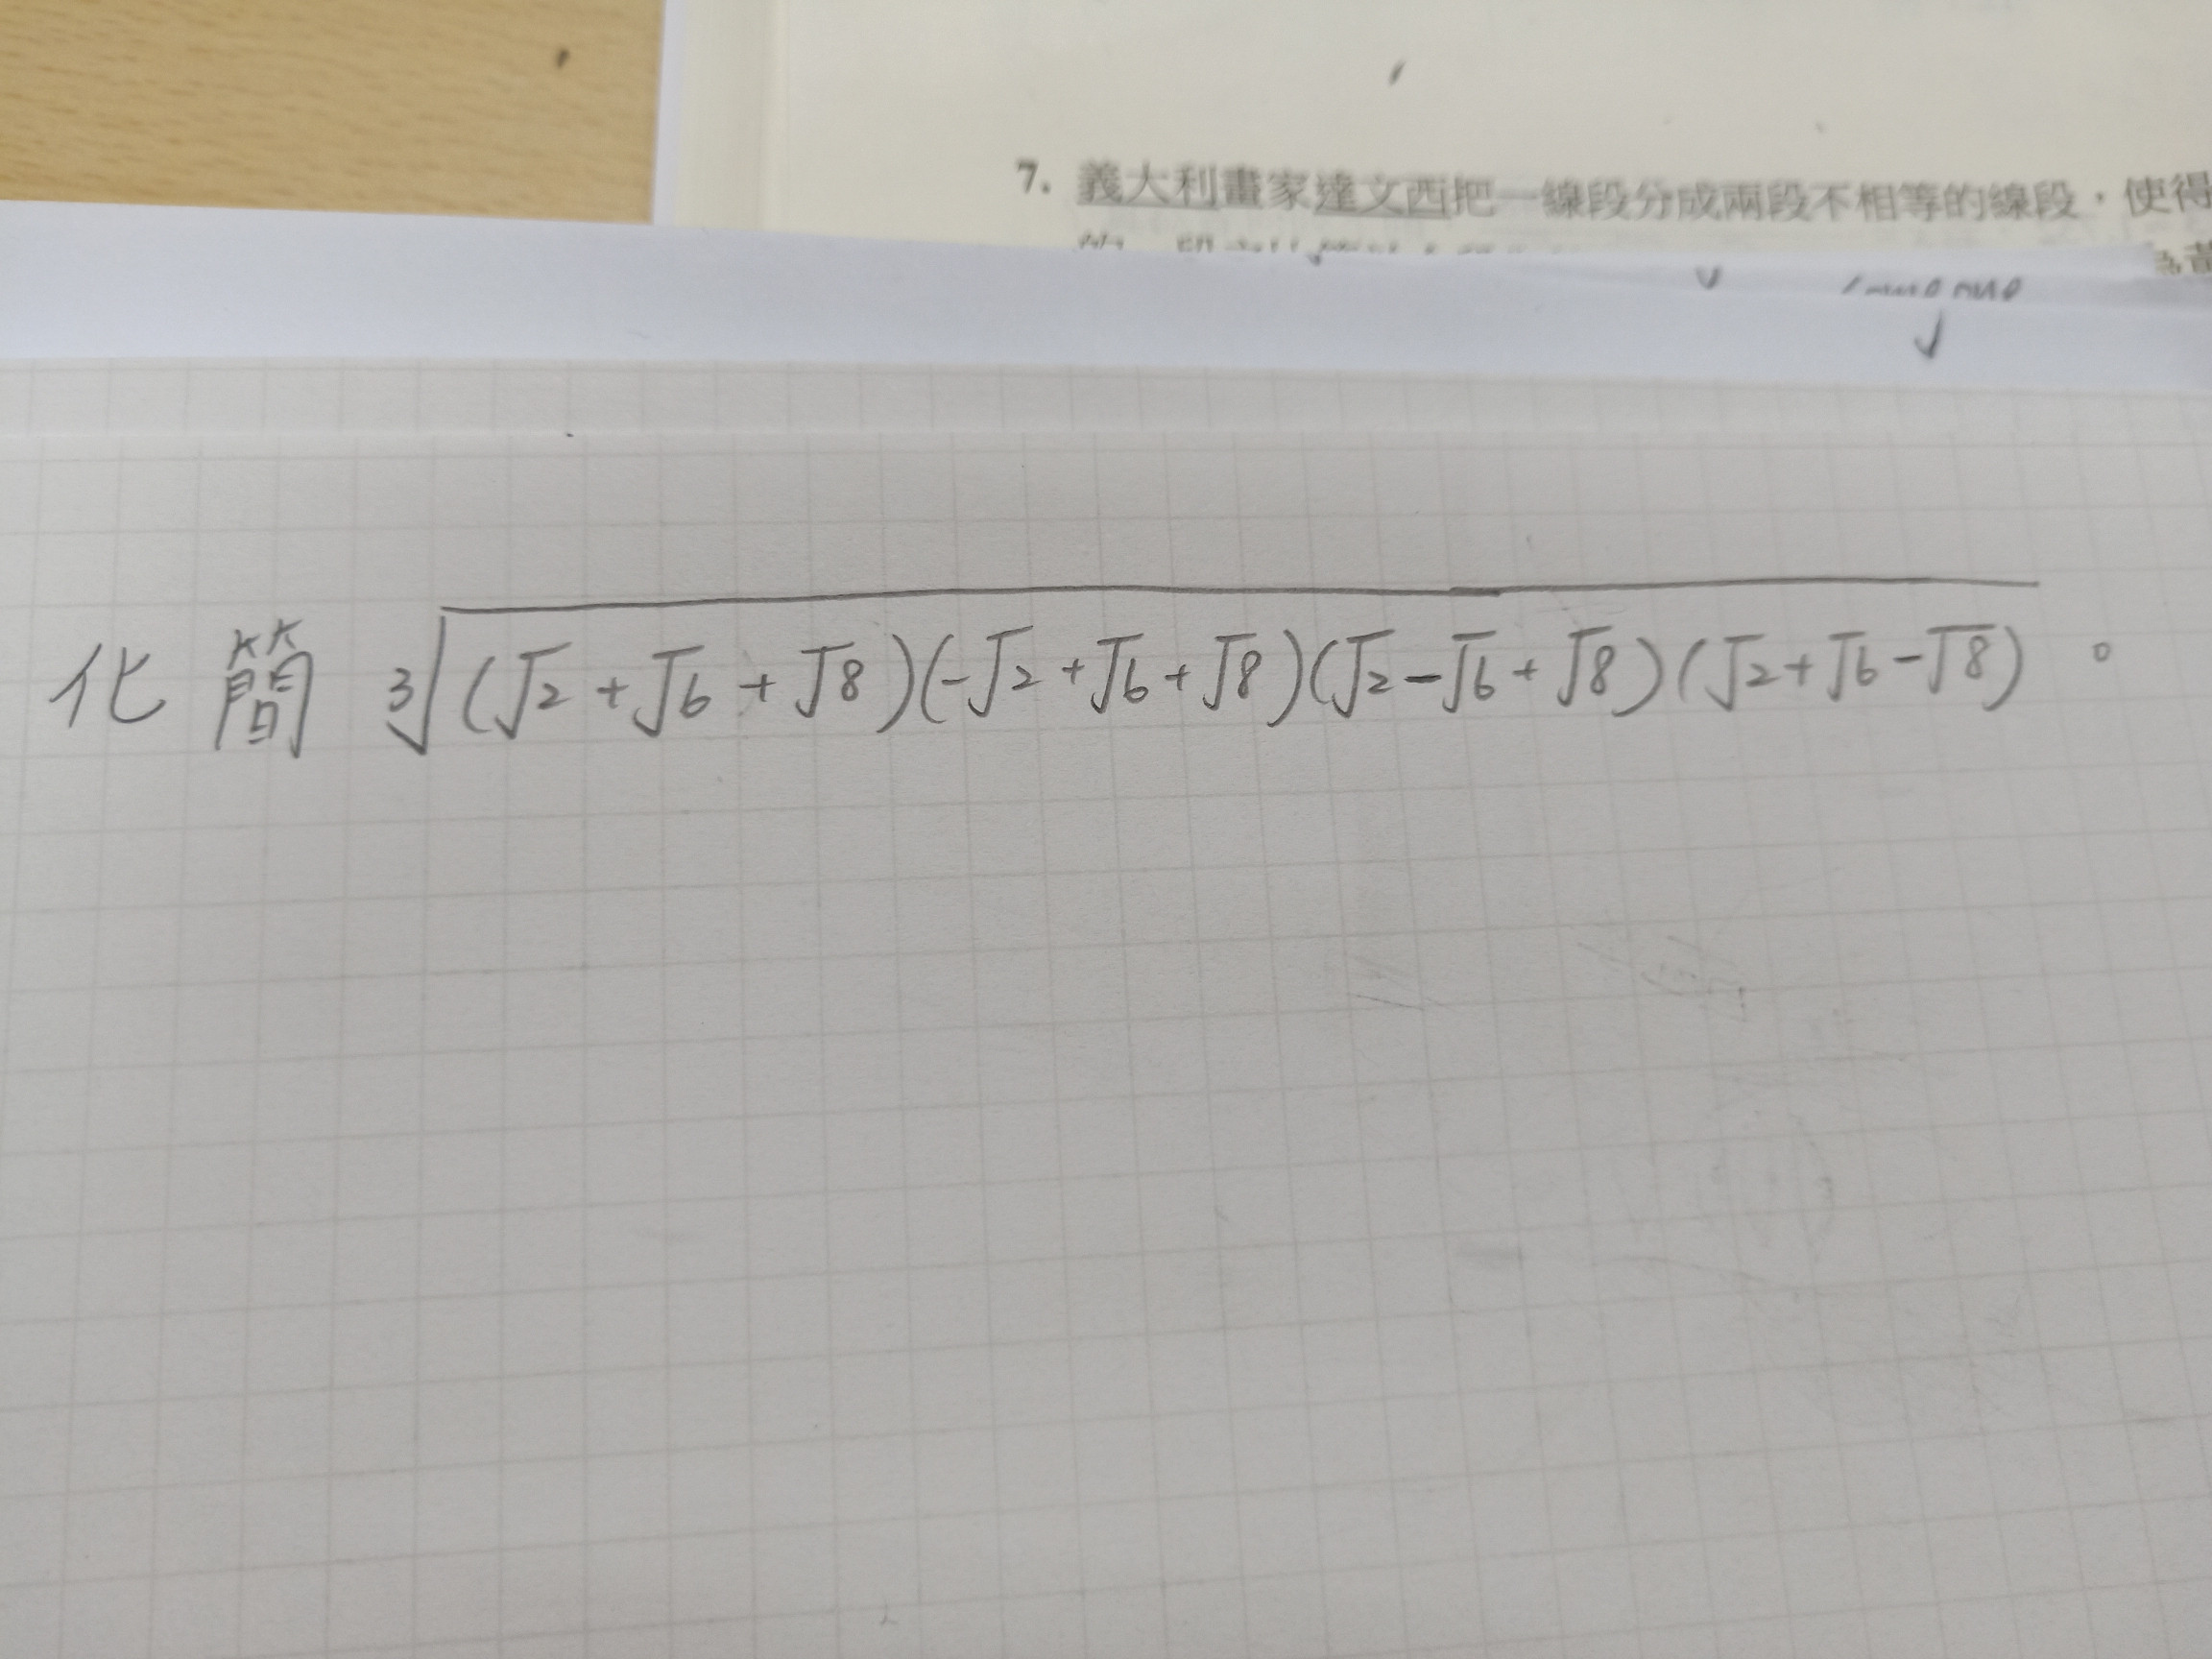 7. 義大利畫家達文西把一線段分成兩段不相等的線段，使得
化簡 ∛(√2+√6+√8)(-√2+√6+√8)(√2-√6+√8)(√2+√6-√8)。